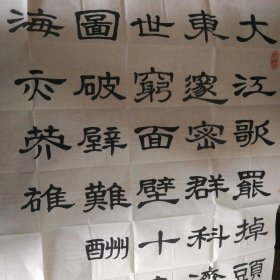 大江歌罷掉頭
東邃密群科濟
世窮面壁十
圖破壁難酬
海亦英雄